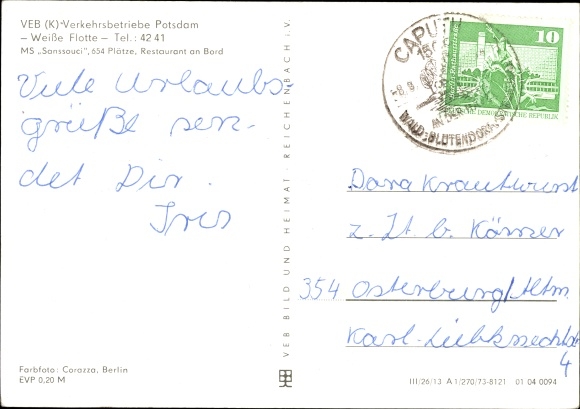 VEB (K) Verkehrsbetriebe Potsdam
– Weiße Flotte – Tel.: 42 41
MS „Sanssouci", 654 Plätze, Restaurant an Bord
Viele Urlaubs-
grüße sen-
det Dir
Iris
Farbfoto: Corazza, Berlin
EVP 0,20 M
VEB BILD UND HEIMAT · REICHENBACH i. V.
CAPUTH
150
8.9.
WALD- u. BLÜTENDORF
10
DEUTSCHE DEMOKRATISCHE REPUBLIK
Dana Krautwurst
z. Zt. b. Körner
354 Osterburg/Altm.
Karl-Liebknechtstr
4
III/26/13 A 1/270/73-8121 01 04 0094